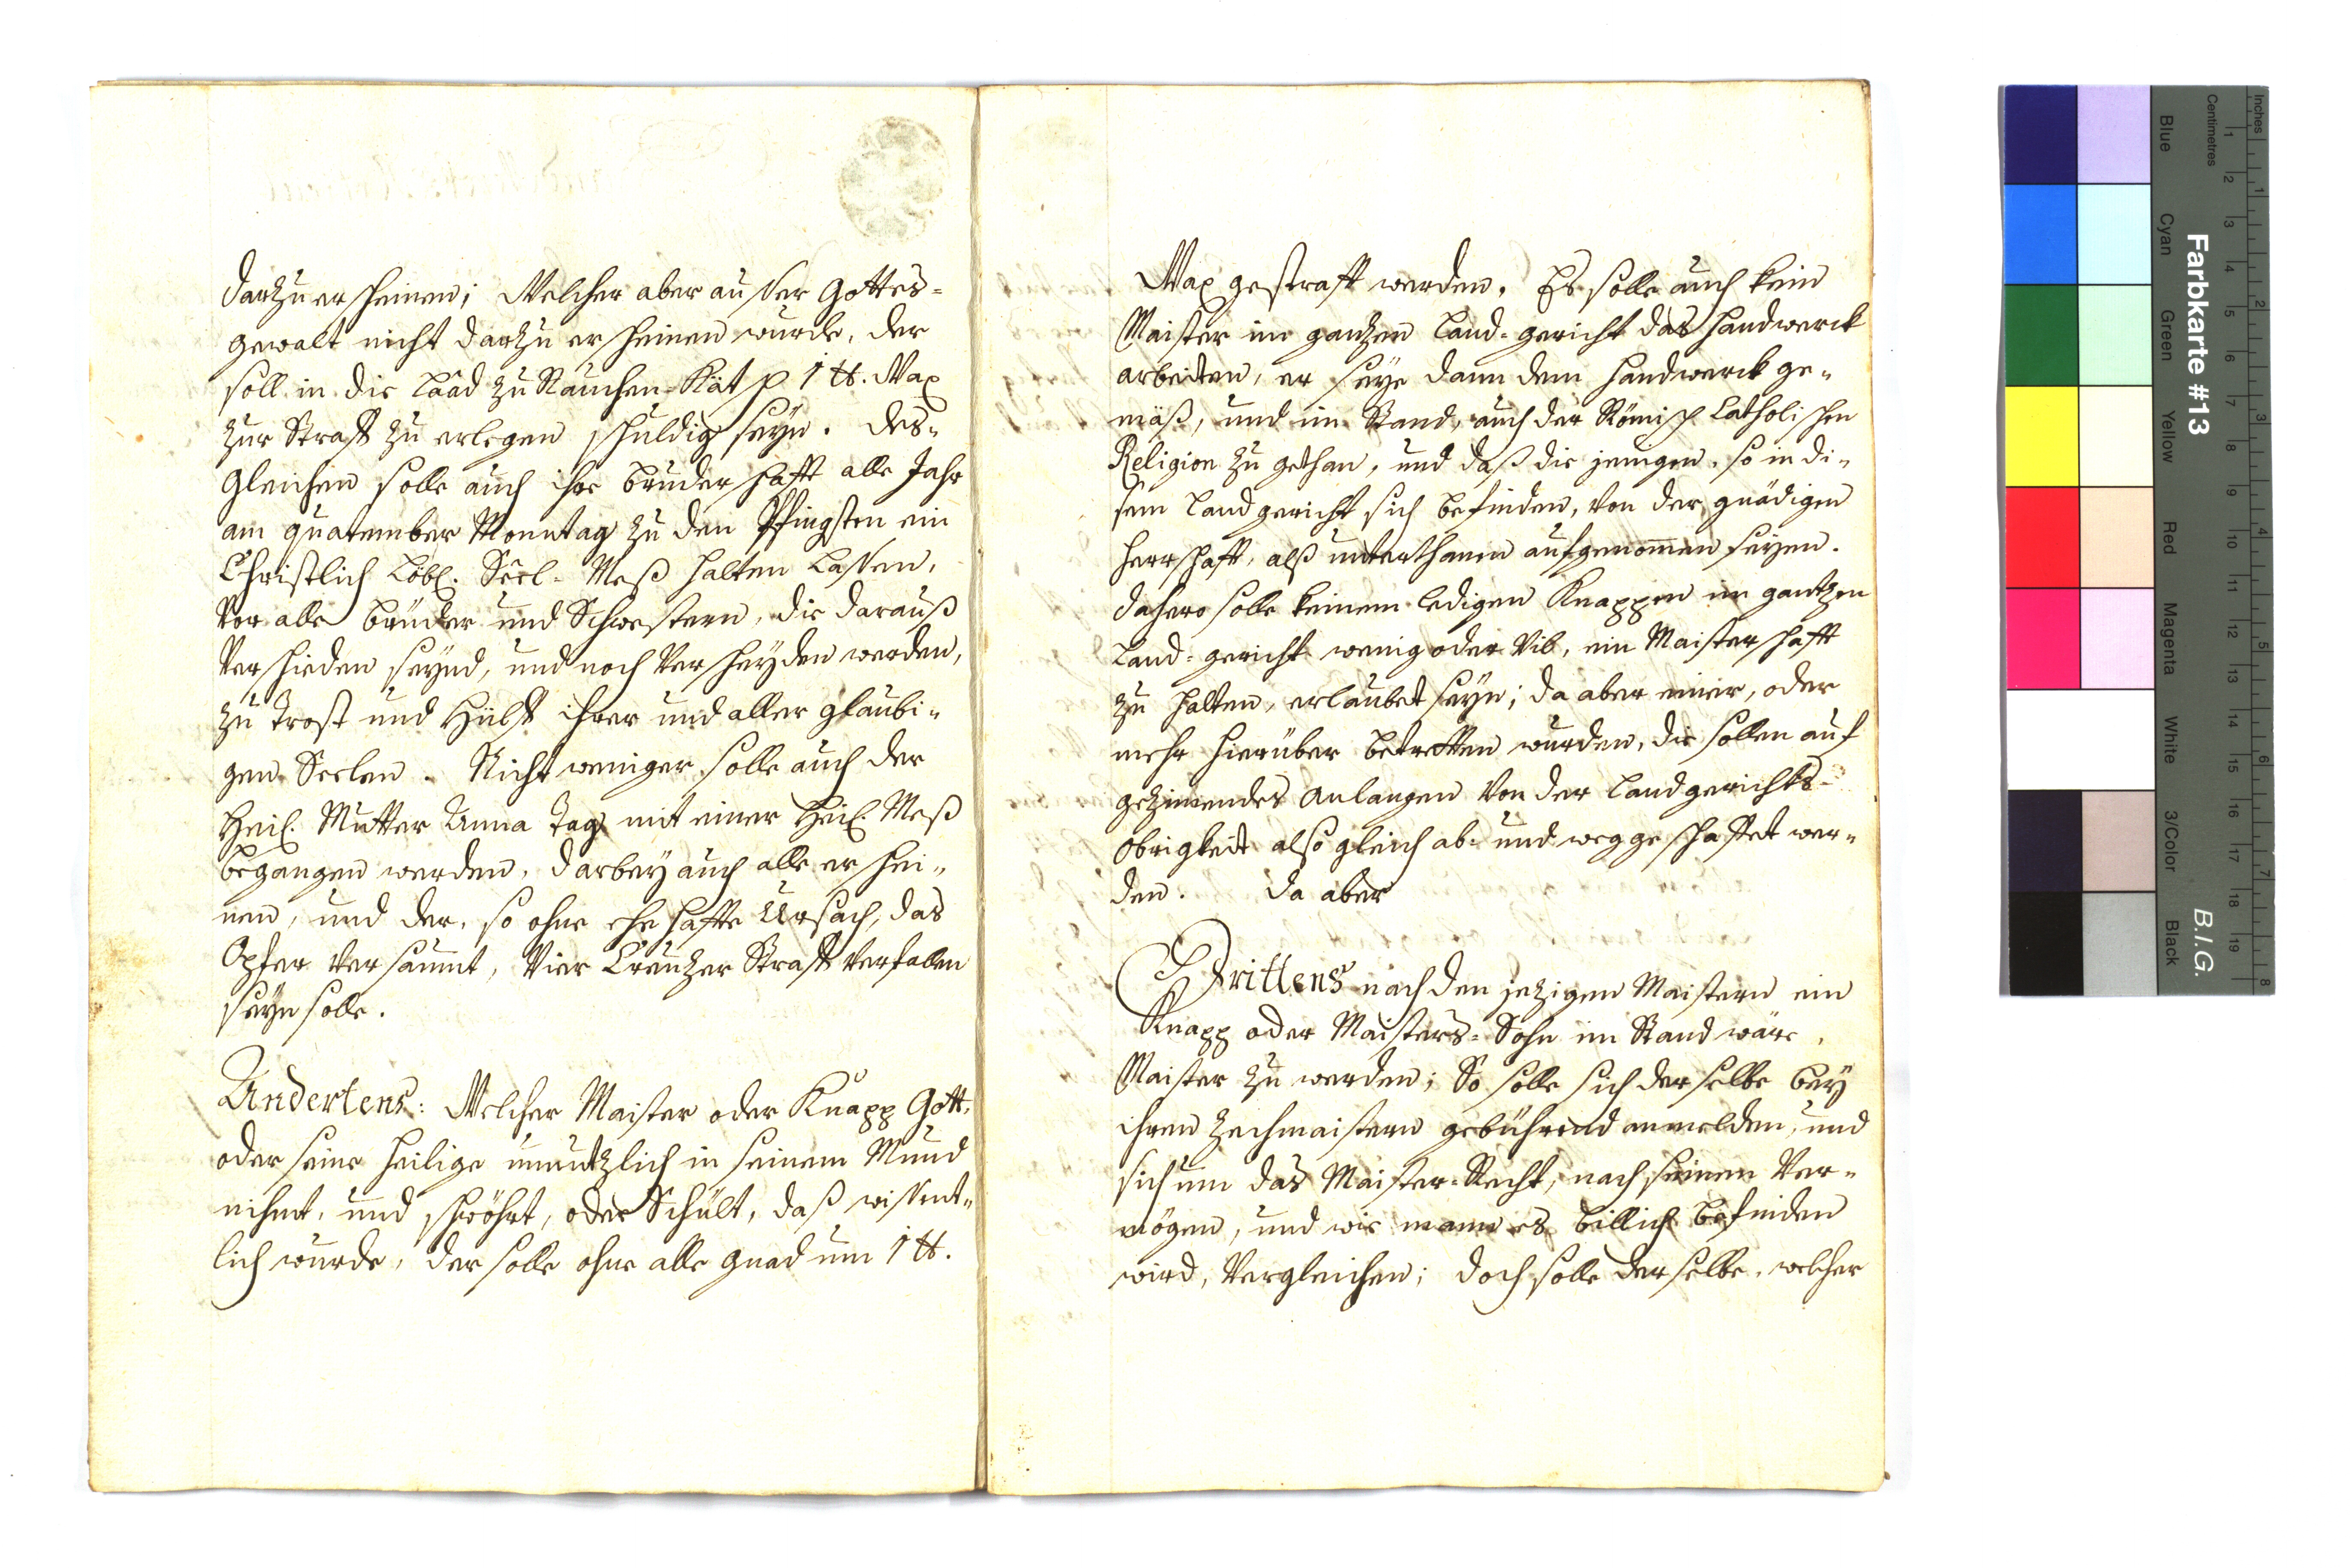 darzu erscheinen; Welcher aber ausser Gottes-
gewalt nicht darzu erscheinen wurde, der
soll in die Laad zu Rauchen-Kät p 1 ℔. Wax
zur Straff zu erlegen schuldig seyn. Des-
gleichen solle auch ihre Bruderschafft alle Jahr
am quatember Monntag zu den Pfingsten ein
Christlich Löbl. Seel-Meß halten Lassen,
Vor alle Brüder und Schwestern, die darauß
Verschieden seynd, und noch Verscheyden werden,
zu Trost und Hülff ihrer und aller glaubi-
gen Seelen. Nicht weniger solle auch der
Heil. Mutter Anna Tag mit einer Heil. Meß
begangen werden, darbey auch alle erschei-
nen, und der, so ohne ehehaffte Ursach, das
Opfer Versaumt, Vier Creuzer Straff Verfallen
seyn solle.
Andertens: Welcher Maister oder Knapp Gott,
oder seine Heilige unnutzlich in seinem Mund
nihmt, und schwöhrt, oder Schült, daß wissent-
lich wurde, der solle ohne alle Gnad um 1 ℔.
Wax gestrafft werden. Es solle auch kein
Maister im ganzen Land-gericht das Handwerck
arbeiten, er seye dann dem Handwerck ge-
mäß, und im Stand, auch der Römisch Catholischen
Religion zu gethan, und daß die jenigen, so in di-
sem Landgericht sich befinden, von der gnädigen
Herrschafft, alß unterthanen aufgenommen seyen.
dahero solle keinem ledigen Knappen im gantzen
Land-gericht wenig oder Vil, ein Maisterschafft
zu halten, erlaubet seyn; da aber einer, oder
mehr hierüber betretten wurden, die sollen auf
gezimendes Anlangen Von der Landgerichts-
Obrigkeit alsogleich ab- und weggeschaffet wer-
den. Da aber
Drittens nach den jezigen Maistern ein
Knapp oder Maisters-Sohn im Stand wäre,
Maister zu werden; So solle sich derselbe bey
ihren Zechmaistern gebührend anmelden, und
sich um das Maister-Recht, nach seinen Ver-
mögen, und wie mann es billich befinden
wird, Vergleichen; doch solle derselbe, welcher
Inches
Centimetres
Farbkarte #13
B.I.G.
Blue
Cyan
Green
Yellow
Red
Magenta
White
3/Color
Black